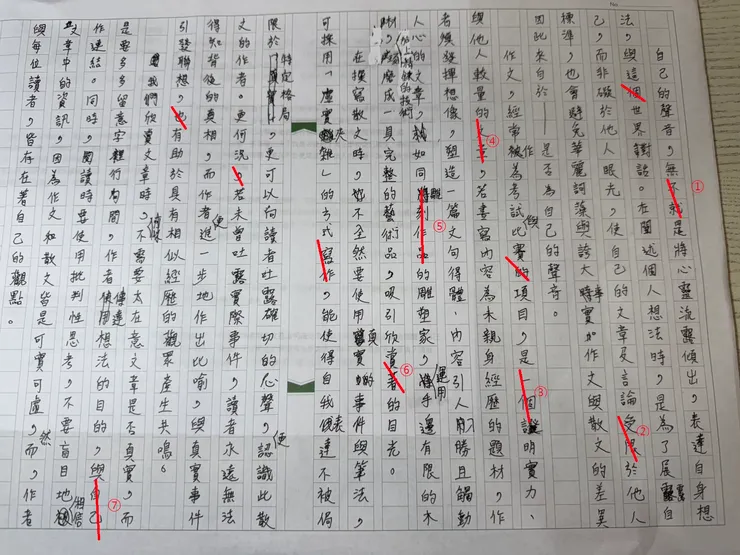 自己的聲音,無不就是將心靈流露傾出,表達自身想
法,與這個世界對話。在闡述個人想法時,是為了展露自
己,而非礙於他人眼光,使自己的文章及言論受限於他人
標準,也會避免華麗詞藻與誇大事實。如作文與散文的差異
因此來自於——是否為自己的聲音。
作文,經常被作為考試與比實的項目,是一個證明實力、
與他人較量的文章,若書寫內容為未親身經歷的題材,作
者須發揮想像,塑造一篇文句得體、內容引人入勝且觸動
人心的文章,就如同雕刻作品的雕塑家,運用手邊有限的木
加上精練的技術
磨成一具完整的藝術品,吸引欣賞者的目光。
在撰寫散文時,不全然要使用真實的事件與筆法,
可採用「虛實夾雜」的方式寫作,能使得自我表達不被侷
限於特定格局,更可以向讀者吐露確切的心聲,使認識此散
文的作者。更何況,若未曾吐露實際事件,讀者永遠無法
得知背後的真相,而作者進一步地作出比喻,與真實事件
引發聯想,也有助於具有相似經歷的觀眾產生共鳴。
我們欣賞文章時,不需要太在意文章是不真實,而
是要多多留意字裡行間,作者傳達想法的目的,與自己
作連結。同時,閱讀時要使用批判性思考,不要盲目地相信
文章中的資訊,因為作文和散文皆是可實可虛,然而,作者
與每位讀者,皆存在著自己的觀點。
①
②
③
④
⑤
⑥
⑦